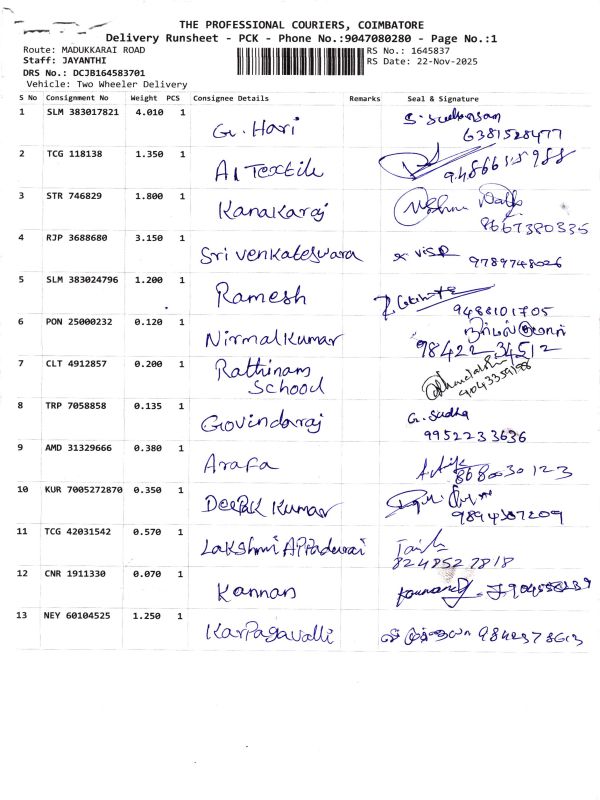 THE PROFESSIONAL COURIERS, COIMBATORE
Delivery Runsheet - PCK - Phone No.:9047080280 - Page No.:1
Route: MADUKKARAI ROAD RS No.: 1645837
Staff: JAYANTHI RS Date: 22-Nov-2025
DRS No.: DCJB164583701
Vehicle: Two Wheeler Delivery
S No Consignment No Weight PCS Consignee Details Remarks Seal & Signature
1 SLM 383017821 4.010 1 G. Hari
6381528477
2 TCG 118138 1.350 1 A1 Textile
3 STR 746829 1.800 1 Kanakaraj
8667380335
4 RJP 3688680 3.150 1 Sri venkateswara
9789748026
5 SLM 383024796 1.200 1 Ramesh
9488101705
6 PON 25000232 0.120 1 Nirmalkumar
98422 34512
7 CLT 4912857 0.200 1 Rathinam
School
8 TRP 7058858 0.135 1 Govindaraj G. Sudha
9952233636
9 AMD 31329666 0.380 1 Arafa
8680030123
10 KUR 7005272870 0.350 1 Deepak Kumar
9894387209
11 TCG 42031542 0.570 1 Lakshmi APPadurai
8248527818
12 CNR 1911330 0.070 1 Kannan
13 NEY 60104525 1.250 1 Karpagavalli 9842378613